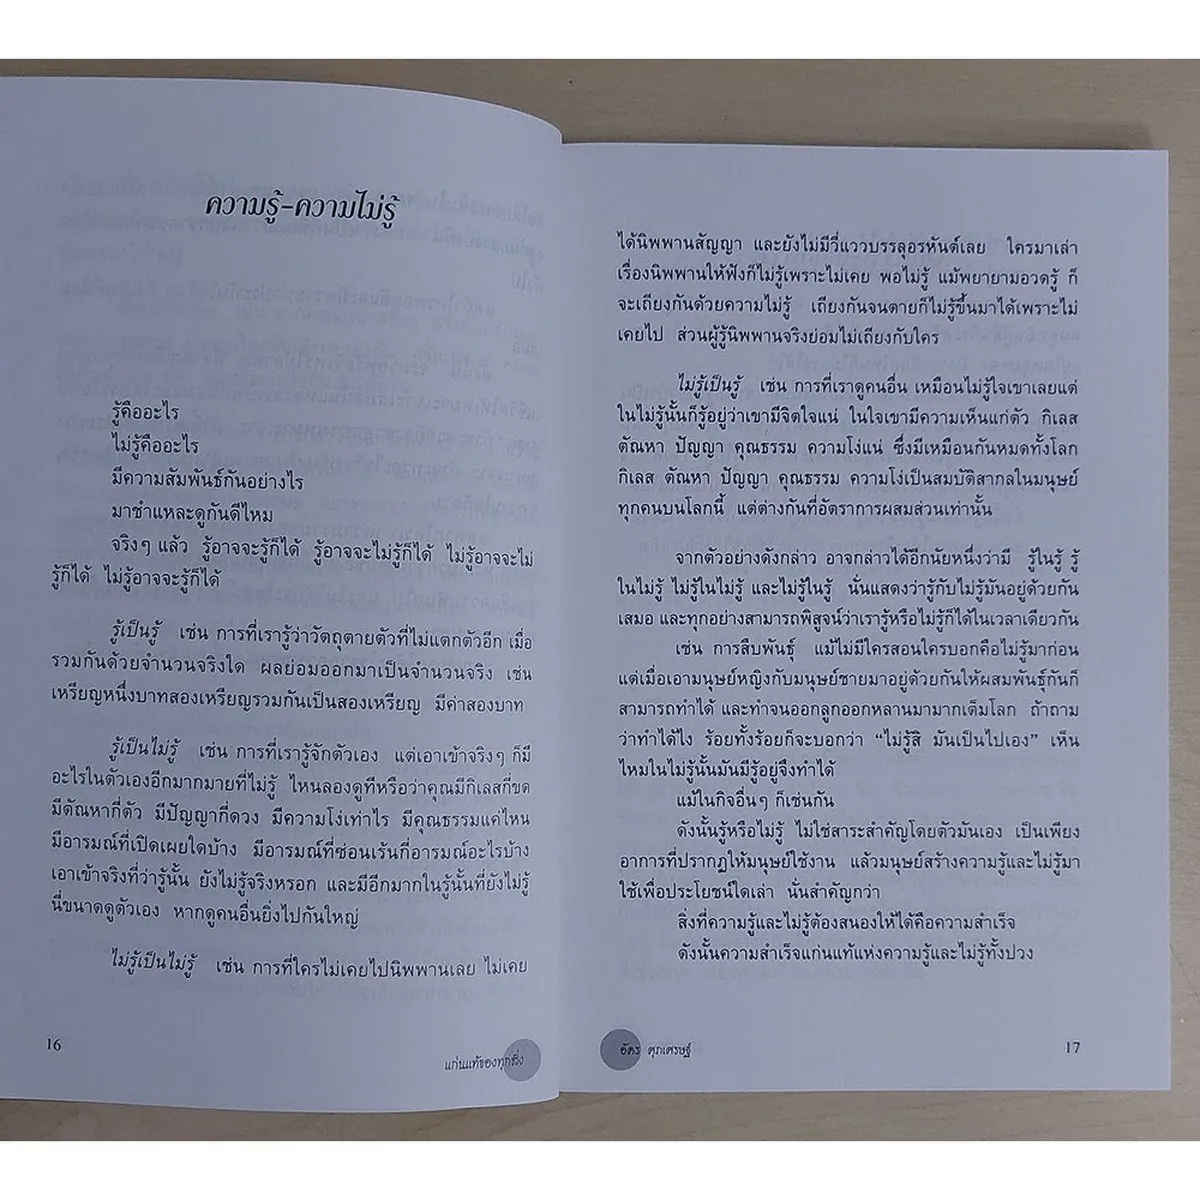 ความรู้-ความไม่รู้
รู้คืออะไร
ไม่รู้คืออะไร
มีความสัมพันธ์กันอย่างไร
มาชำแหละดูกันดีไหม
จริงๆ แล้ว รู้อาจจะรู้ก็ได้ รู้อาจจะไม่รู้ก็ได้ ไม่รู้อาจจะไม่
รู้ก็ได้ ไม่รู้อาจจะรู้ก็ได้
รู้เป็นรู้ เช่น การที่เรารู้ว่าวัตถุตายตัวที่ไม่แตกตัวอีก เมื่อ
รวมกันด้วยจำนวนจริงใด ผลย่อมออกมาเป็นจำนวนจริง เช่น
เหรียญหนึ่งบาทสองเหรียญรวมกันเป็นสองเหรียญ มีค่าสองบาท
รู้เป็นไม่รู้ เช่น การที่เรารู้จักตัวเอง แต่เอาเข้าจริงๆ ก็มี
อะไรในตัวเองอีกมากมายที่ไม่รู้ ไหนลองดูทีหรือว่าคุณมีกิเลสกี่ขด
มีตัณหากี่ตัว มีปัญญากี่ดวง มีความโง่เท่าไร มีคุณธรรมแค่ไหน
มีอารมณ์ที่เปิดเผยใดบ้าง มีอารมณ์ที่ซ่อนเร้นกี่อารมณ์อะไรบ้าง
เอาเข้าจริงที่ว่ารู้นั้น ยังไม่รู้จริงหรอก และมีอีกมากในรู้นั้นที่ยังไม่รู้
นี่ขนาดดูตัวเอง หากดูคนอื่นยิ่งไปกันใหญ่
ไม่รู้เป็นไม่รู้ เช่น การที่ใครไม่เคยไปนิพพานเลย ไม่เคย
16
แก่นแท้ของทุกสิ่ง
ได้นิพพานสัญญา และยังไม่มีวี่แววบรรลุอรหันต์เลย ใครมาเล่า
เรื่องนิพพานให้ฟังก็ไม่รู้เพราะไม่เคย พอไม่รู้ แม้พยายามอวดรู้ ก็
จะเถียงกันด้วยความไม่รู้ เถียงกันจนตายก็ไม่รู้ขึ้นมาได้เพราะไม่
เคยไป ส่วนผู้รู้นิพพานจริงย่อมไม่เถียงกับใคร
ไม่รู้เป็นรู้ เช่น การที่เราดูคนอื่น เหมือนไม่รู้ใจเขาเลยแต่
ในไม่รู้นั้นก็รู้อยู่ว่าเขามีจิตใจแน่ ในใจเขามีความเห็นแก่ตัว กิเลส
ตัณหา ปัญญา คุณธรรม ความโง่แน่ ซึ่งมีเหมือนกันหมดทั้งโลก
กิเลส ตัณหา ปัญญา คุณธรรม ความโง่เป็นสมบัติสากลในมนุษย์
ทุกคนบนโลกนี้ แต่ต่างกันที่อัตราการผสมส่วนเท่านั้น
จากตัวอย่างดังกล่าว อาจกล่าวได้อีกนัยหนึ่งว่ามี รู้ในรู้ รู้
ในไม่รู้ ไม่รู้ในไม่รู้ และไม่รู้ในรู้ นั่นแสดงว่ารู้กับไม่รู้มันอยู่ด้วยกัน
เสมอ และทุกอย่างสามารถพิสูจน์ว่าเรารู้หรือไม่รู้ก็ได้ในเวลาเดียวกัน
เช่น การสืบพันธุ์ แม้ไม่มีใครสอนใครบอกคือไม่รู้มาก่อน
แต่เมื่อเอามนุษย์หญิงกับมนุษย์ชายมาอยู่ด้วยกันให้ผสมพันธุ์กันก็
สามารถทำได้ และทำจนออกลูกออกหลานมามากเต็มโลก ถ้าถาม
ว่าทำได้ไง ร้อยทั้งร้อยก็จะบอกว่า “ไม่รู้สิ มันเป็นไปเอง” เห็น
ไหมในไม่รู้นั้นมันมีรู้อยู่จึงทำได้
แม้ในกิจอื่นๆ ก็เช่นกัน
ดังนั้นรู้หรือไม่รู้ ไม่ใช่สาระสำคัญโดยตัวมันเอง เป็นเพียง
อาการที่ปรากฏให้มนุษย์ใช้งาน แล้วมนุษย์สร้างความรู้และไม่รู้มา
ใช้เพื่อประโยชน์ใดเล่า นั่นสำคัญกว่า
สิ่งที่ความรู้และไม่รู้ต้องสนองให้ได้คือความสำเร็จ
ดังนั้นความสำเร็จแก่นแท้แห่งความรู้และไม่รู้ทั้งปวง
อัคร ศุภเศรษฐ์
17